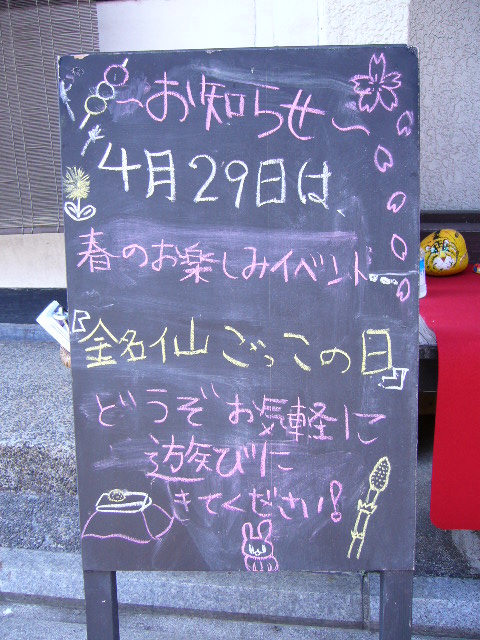 ～お知らせ～
4月29日は、
春のお楽しみイベント…
『金名仙ごっこの日』
どうぞお気軽に
遊びに
きてください！